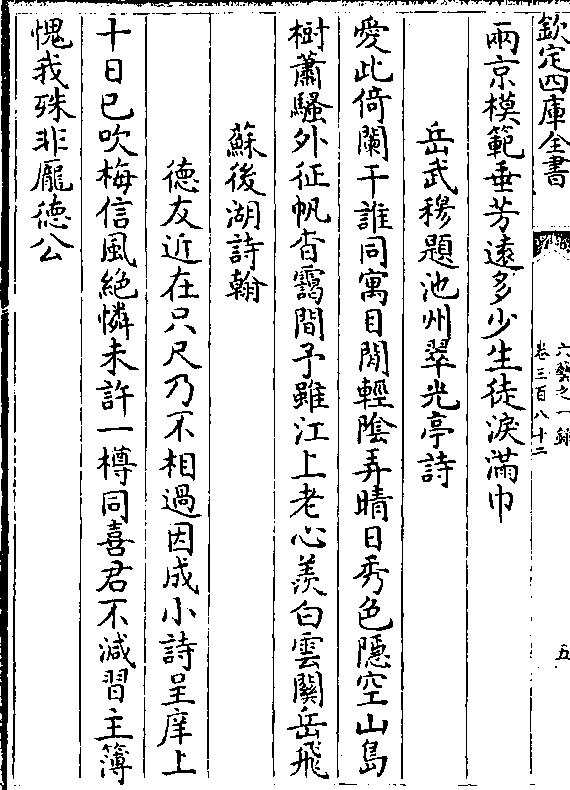 欽定四庫全書
六藝之一錄
卷三百八十二
五
兩京模範垂芳遠多少生徒淚滿巾
岳武穆題池州翠光亭詩
愛此倚闌干誰同寓目閒輕陰弄晴日秀色隱空山島
樹蕭騷外征帆杳靄間予雖江上老心羨白雲闗岳飛
蘇後湖詩翰
德友近在只尺乃不相過因成小詩呈庠上
十日已吹梅信風絶憐未許一樽同喜君不減習主簿
愧我殊非龎徳公